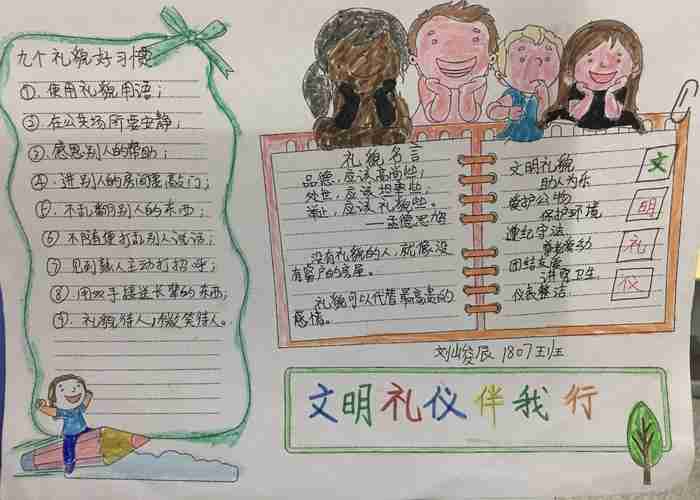 九个礼貌好习惯
①. 使用礼貌用语；
② 在公共场所要安静；
③. 感恩别人的帮助；
④. 进别人的房间要敲门；
⑤. 不乱翻别人的东西；
⑥ 不随便打乱别人说话；
⑦ 见到熟人主动打招呼；
⑧. 用双手接送长辈的东西；
⑨. 礼貌待人，微笑待人。
礼貌名言
品德，应该高尚些；
处世，应该坦率些；
举止，应该礼貌些。
——孟德斯鸠
没有礼貌的人，就像没
有窗户的房屋。
礼貌可以代替最高贵的
感情。
文明礼貌
助人为乐
爱护公物
保护环境
遵纪守法
团结友爱
讲究卫生
仪表整洁
文
明
礼
仪
刘峻辰 1807班
文明礼仪伴我行